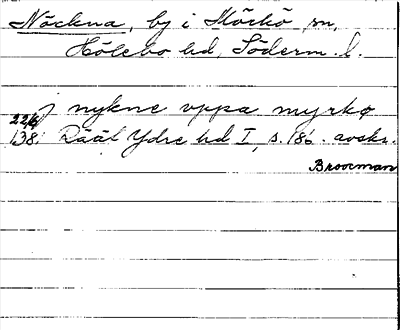 Näckna, by i Mörkö sn,
Hölebo hd, Söderm. l.
J nykne vppa myrkø
22/6
138. Rääl Ydre hd I, s. 186. avskr.
Broocman